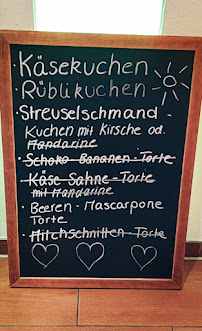 Käsekuchen
Rüblikuchen
· Streuselschmand -
Kuchen mit Kirsche od.
Mandarine
· Schoko-Bananen-Torte
· Käse Sahne-Torte
mit Mandarine
· Beeren-Mascarpone
Torte
· Milchschnitten-Torte